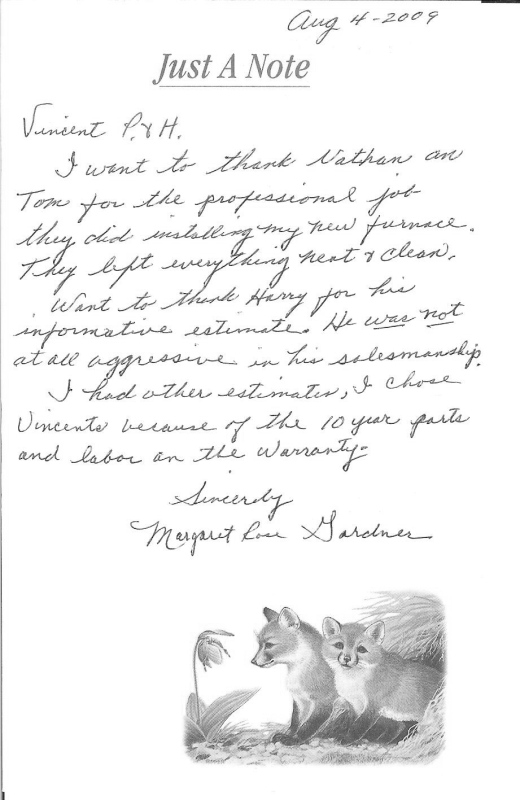 Aug 4-2009
Just A Note
Vincent P. & H.
I want to thank Nathan an
Tom for the professional job
they did installing my new furnace.
They left everything neat & clean.
Want to thank Harry for his
informative estimate. He was not
at all aggressive in his salesmanship.
I had other estimates, I chose
Vincents because of the 10 year parts
and labor on the warranty.
Sincerely
Margaret Rose Gardner